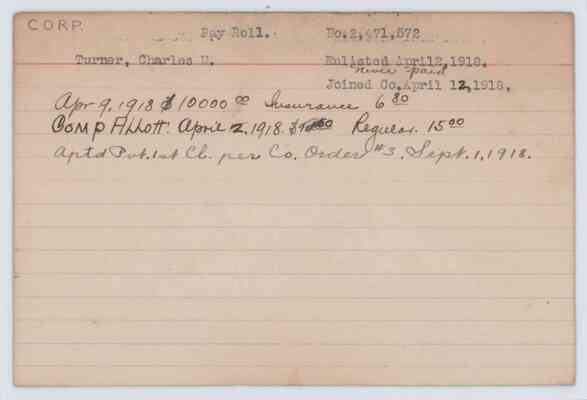 CORP.
Pay Roll. No.2,471,572
Turner, Charles U. Enlisted April2,1918.
never paid
Joined Co.April 12,1918.
Apr 9, 1918 $10000 00 Insurance 6 80
Comp Allott: April 2, 1918. Regular. 15 00
Aptd Pvt. 1st Cl. per Co. Order #3. Sept. 1, 1918.